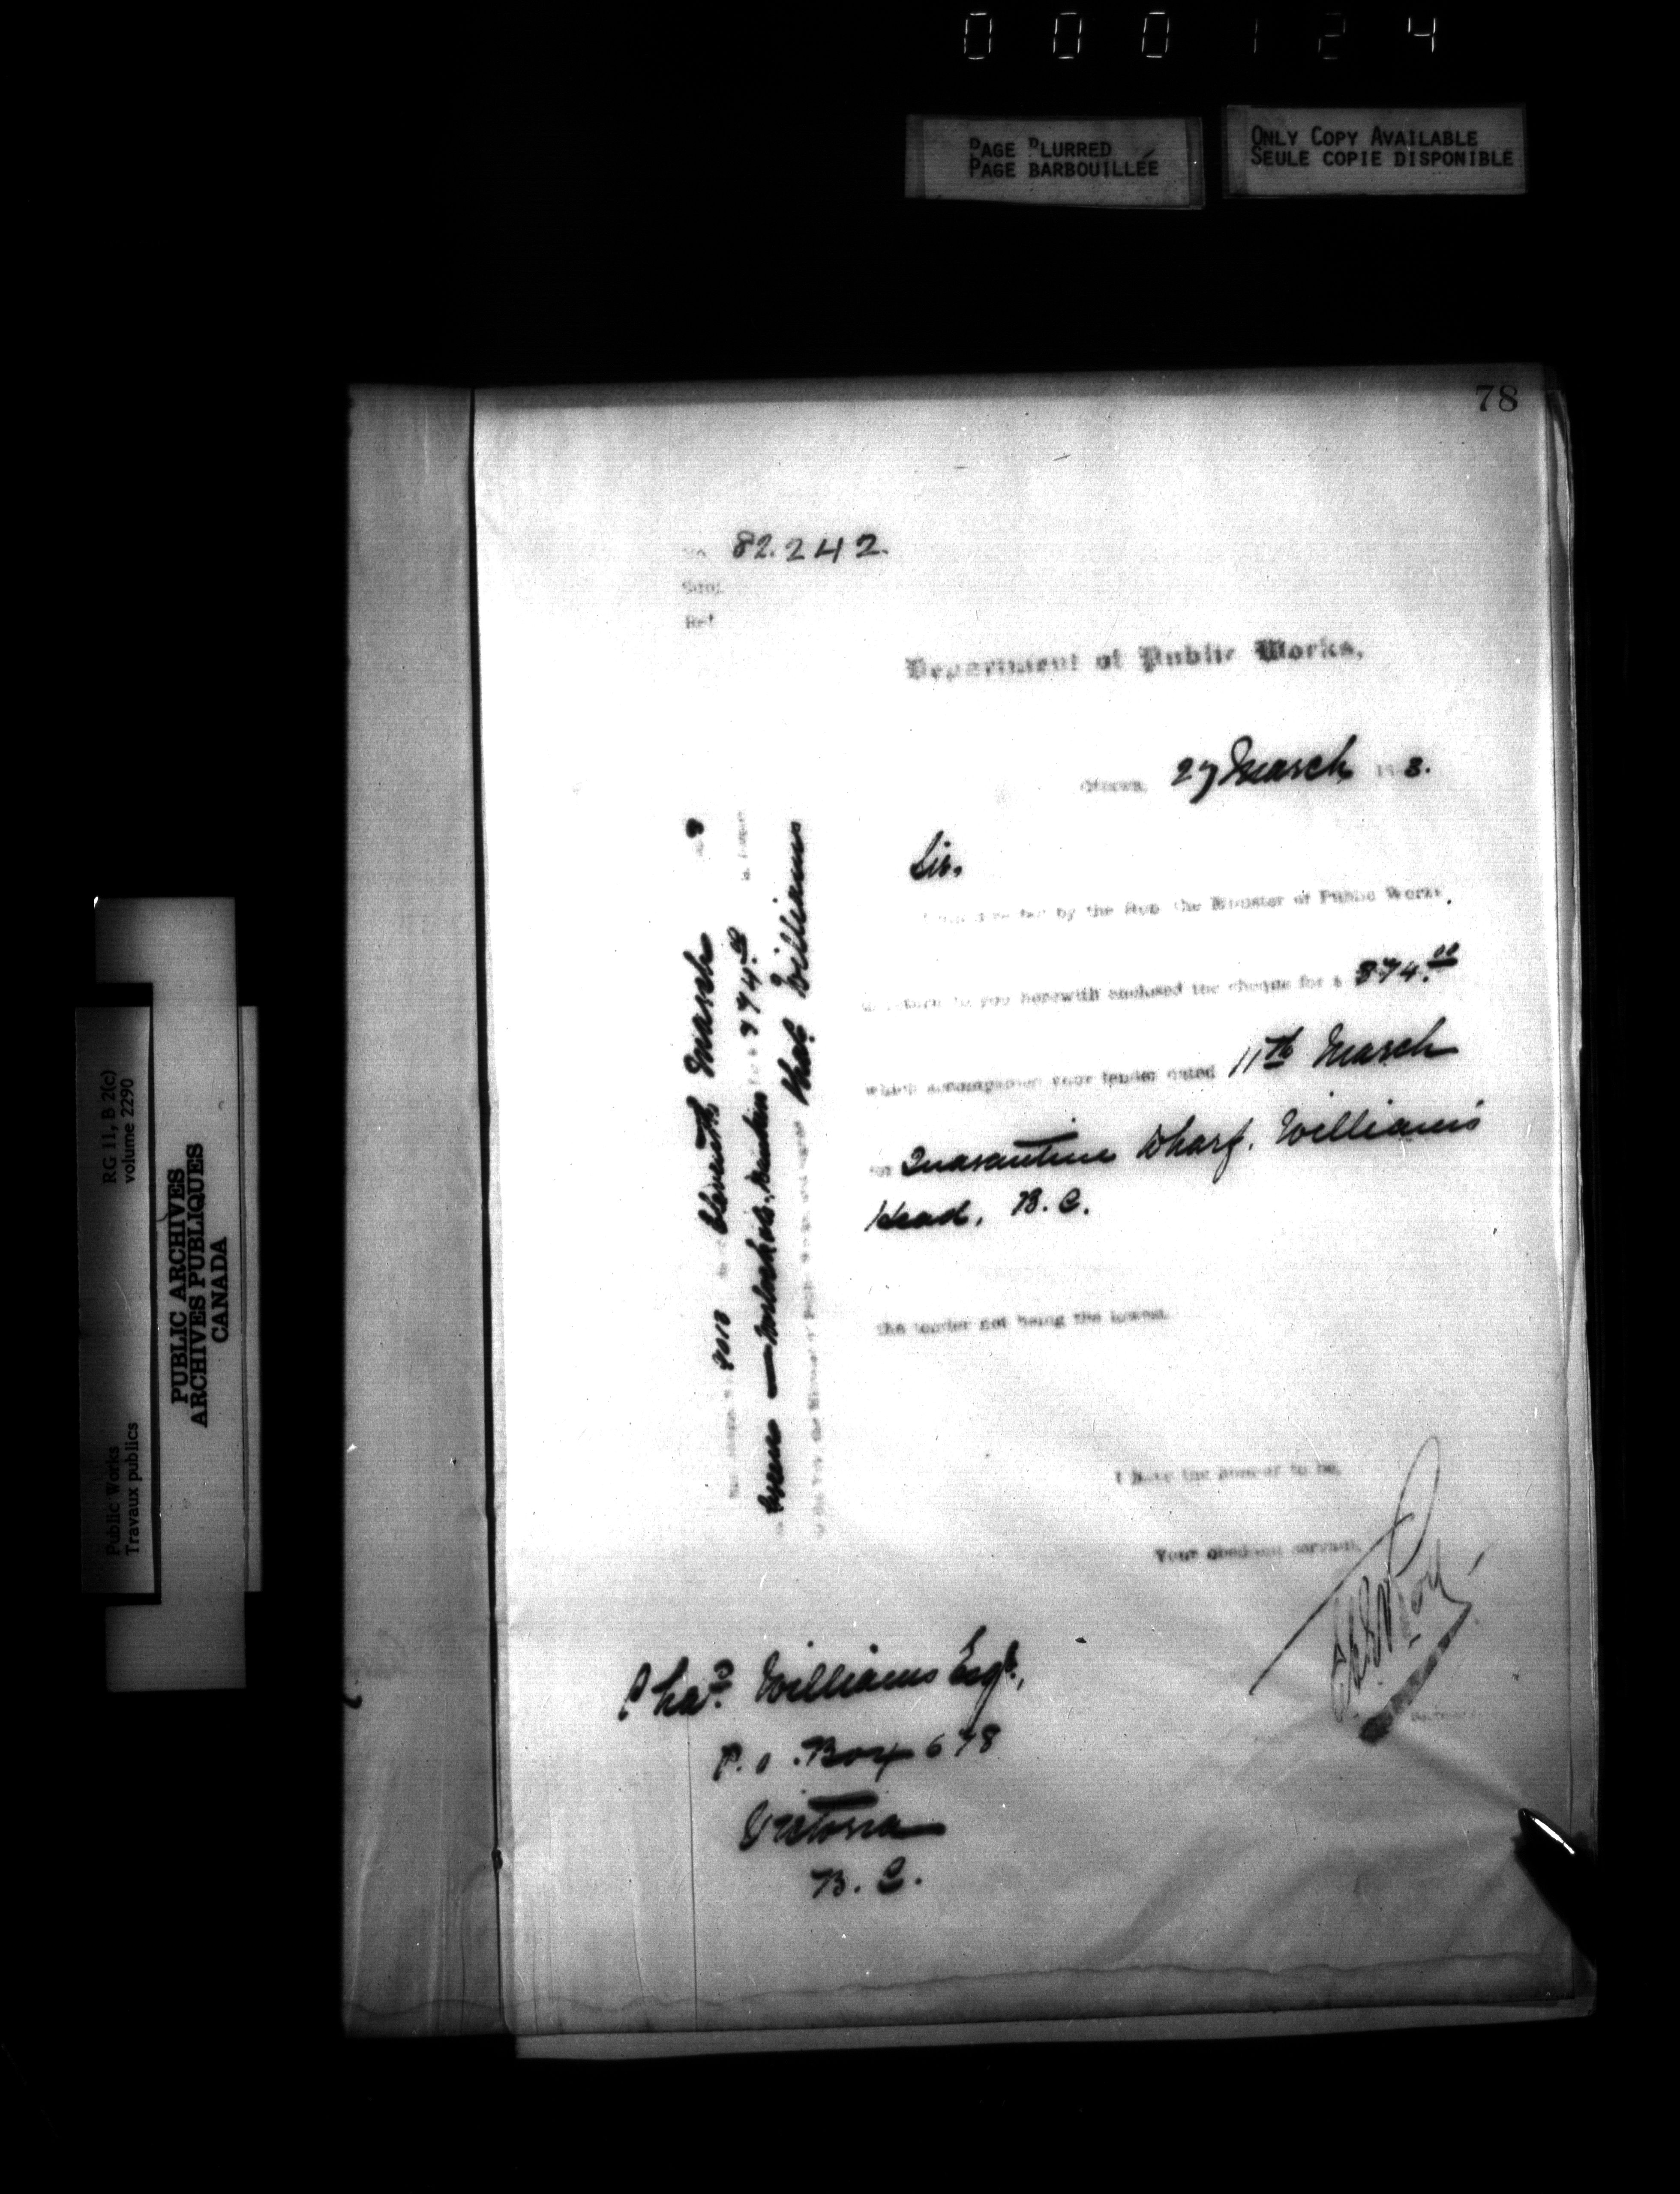 000124
PAGE BLURRED
PAGE BARBOUILLÉE
ONLY COPY AVAILABLE
SEULE COPIE DISPONIBLE
78
No. 82.242.
Subj.
Ref.
Department of Public Works,
Ottawa, 27 March 1 8.
Sir,
by the Hon. the Minister of Public Works,
to return to you herewith enclosed the cheque for $ 374.00
which accompanied your tender dated 11th March
for Quarantine Wharf. Williams
Head, B.C.
the tender not being the lowest.
I have the honour to be,
Your obedient servant,
Chas. Williams Esqr.,
P.O. Box 678
Victoria
B.C.
Eleventh March 8
374.00
Chas. Williams
Public Works
Travaux publics
RG 11, B 2(c)
volume 2290
PUBLIC ARCHIVES
ARCHIVES PUBLIQUES
CANADA